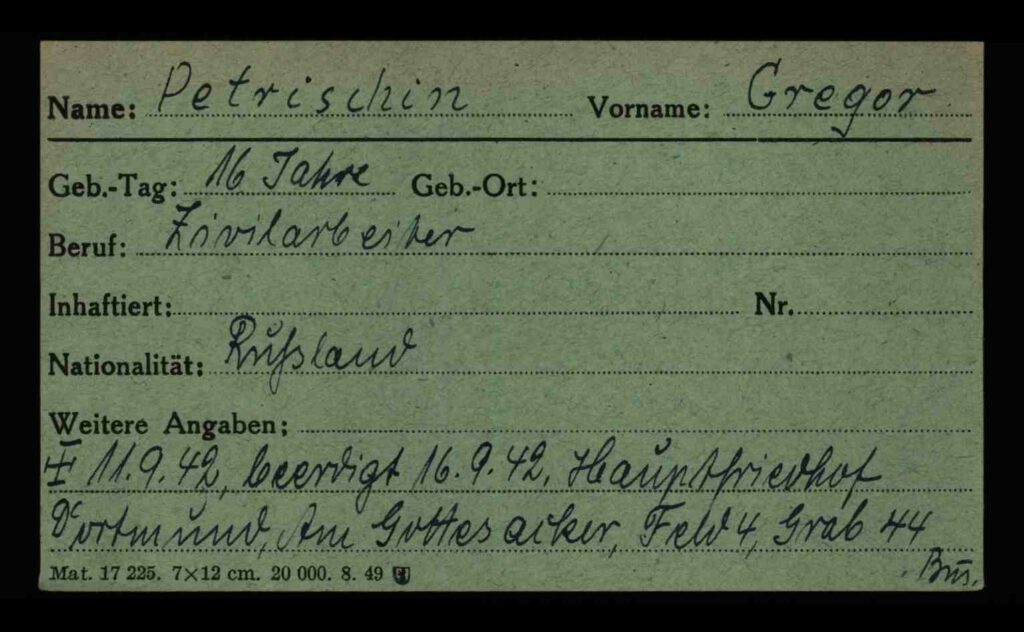 Name: Petrischin Vorname: Gregor
Geb.-Tag: 16 Jahre Geb.-Ort:
Beruf: Zivilarbeiter
Inhaftiert: Nr.
Nationalität: Rußland
Weitere Angaben:
‡ 11.9.42, beerdigt 16.9.42. Hauptfriedhof
Dortmund, Am Gottesacker, Feld 4, Grab 44
Mat. 17 225. 7×12 cm. 20 000. 8. 49